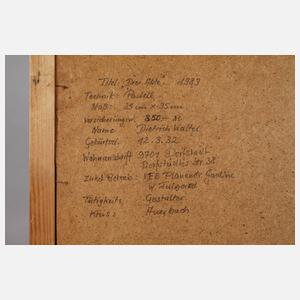 Titel: "Drei Akte" 1989
Technik: Pastell
Maß: 25 cm x 35 cm
Versicherungsw. 850,-
Name Dietrich Walter
Geburtsd. 12.3.32
Wohnanschrift 9701 Dorfstadt
Dorfstädter Str 38
Betrieb: VEB Plauener Gardine
W.
Tätigkeit: Gestalter
Kreis: Auerbach